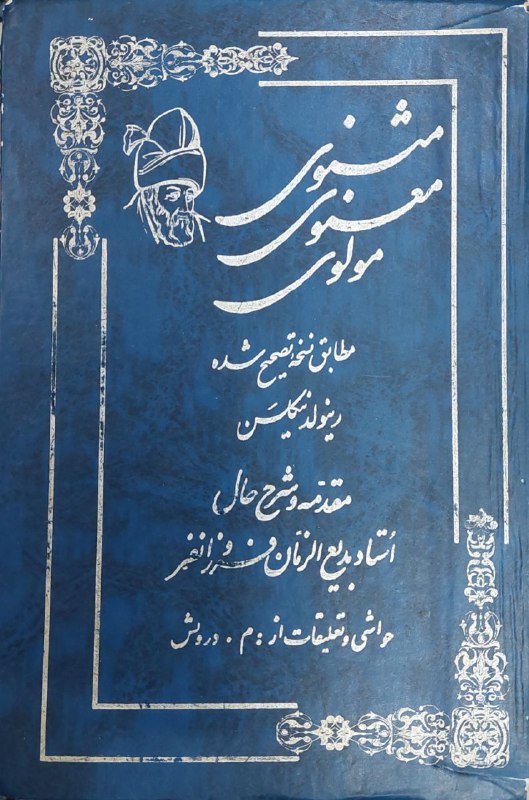 مثنوی
معنوی
مولوی
مطابق نسخه تصحیح شده
رینولد نیکلسن
مقدمه و شرح حال
استاد بدیع الزمان فروزانفر
حواشی و تعلیقات از : م . درویش